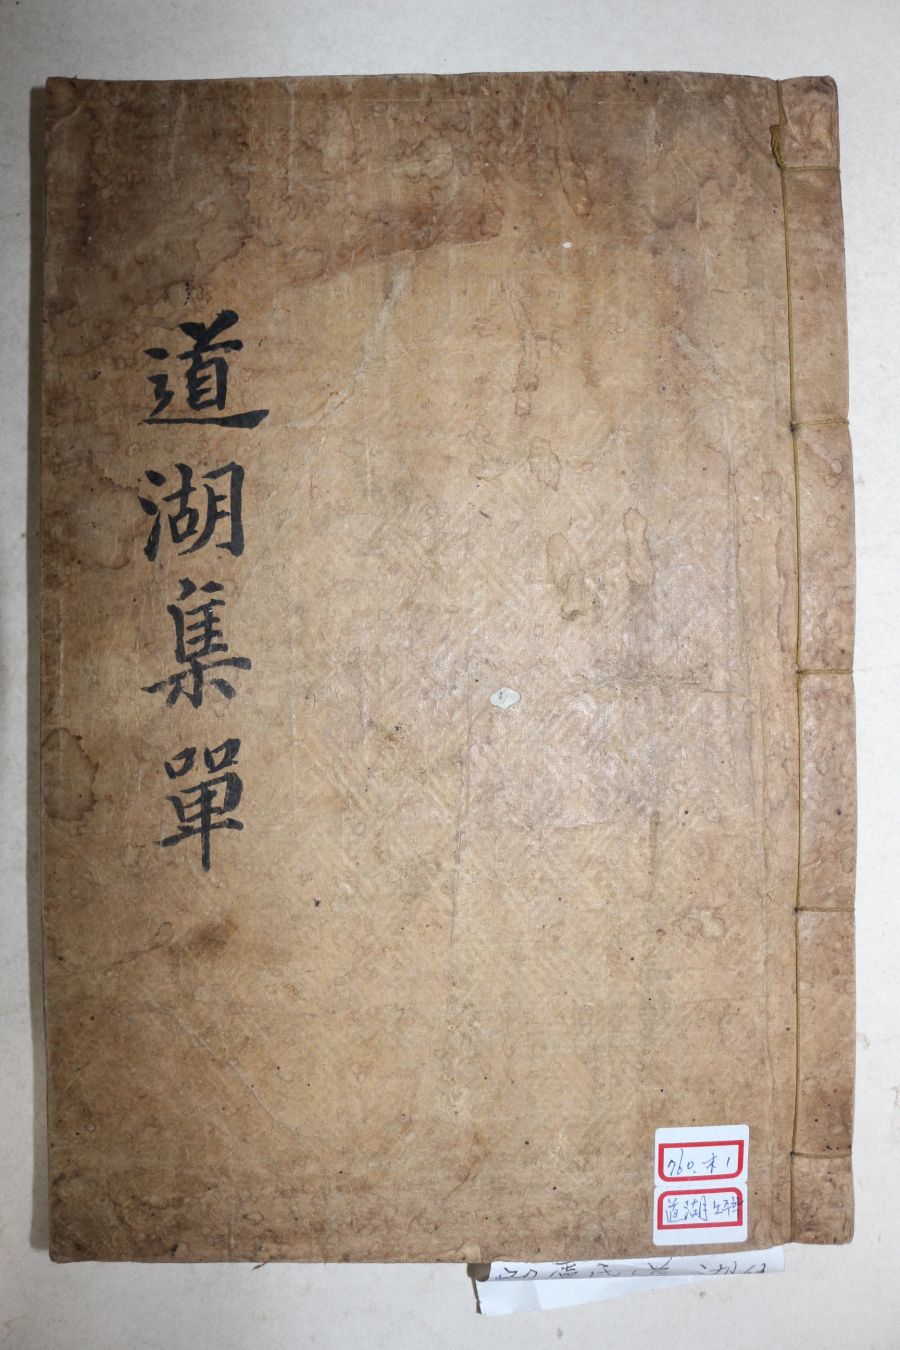 道湖集單
760. 木 1
道湖